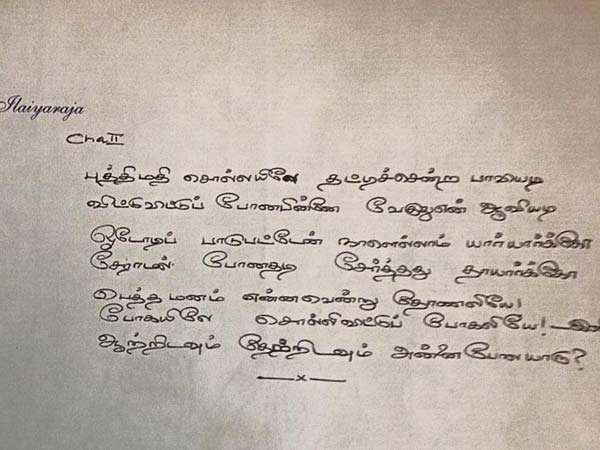 Ilaiyaraja
Cha II
புத்திமதி சொல்லயிலே தட்டிச்சென்ற பாவியடி
விட்டுவிட்டுப் போனபின்னே வேகுதென் ஆவியடி
ஓடியோடிப் பாடுபட்டேன் நாளெல்லாம் யார்யார்க்கோ
சேராமல் போனதடி சேர்த்தது தாயார்க்கோ
பெத்தமனம் என்னவென்று தோணலியே!
போகயிலே சொல்லிவிட்டுப் போகலியே!
ஆற்றிடவும் தேற்றிடவும் அன்னைபோல யாரு?
x